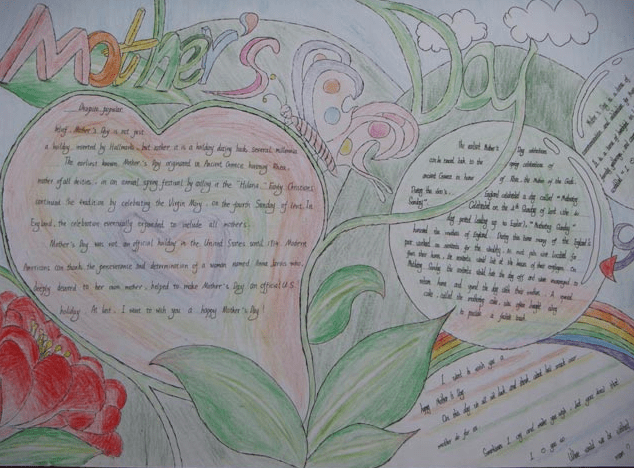 Mother's
Day
Despite popular
belief, Mother's Day is not just
a holiday invented by Hallmark, but rather it is a holiday dating back several millennia
The earliest known Mother's Day originated in Ancient Greece honoring Rhea,
mother of all deities, in an annual spring festival by called the "Hilaria." Early Christians
continued the tradition by celebrating the Virgin Mary on the fourth Sunday of Lent. In
England, the celebration eventually expanded to include all mothers.
Mother's Day was not an official holiday in the United States until 1914. Modern
Americans can thank the perseverance and determination of a woman named Anna Jarvis who,
deeply devoted to her own mother, helped to make Mother's Day an official U.S.
holiday. At last, I want to wish you a happy Mother's Day!
The earliest Mother's Day celebrations
can be traced back to the spring celebrations of
ancient Greece in honor of Rhea, the Mother of the Gods.
During the England celebrated a day called "Mothering
Sunday". Celebrated on the 4th Sunday of Lent (the 40
day period leading up to Easter), "Mothering Sunday"
honored the mothers of England. During this time many of the England's
poor worked as servants for the wealthy. As most jobs were located far
from their homes, the servants would live at the houses of their employers. On
Mothering Sunday the servants would have the day off and were encouraged to
return home and spend the day with their mothers. A special
cake, called the mothering cake, was often brought along
to provide a festive touch.
I want to wish you a
happy Mother's Day.
On this day us all sit back and think about
mother do for us.
Sometimes I cry and make you but you
I you so